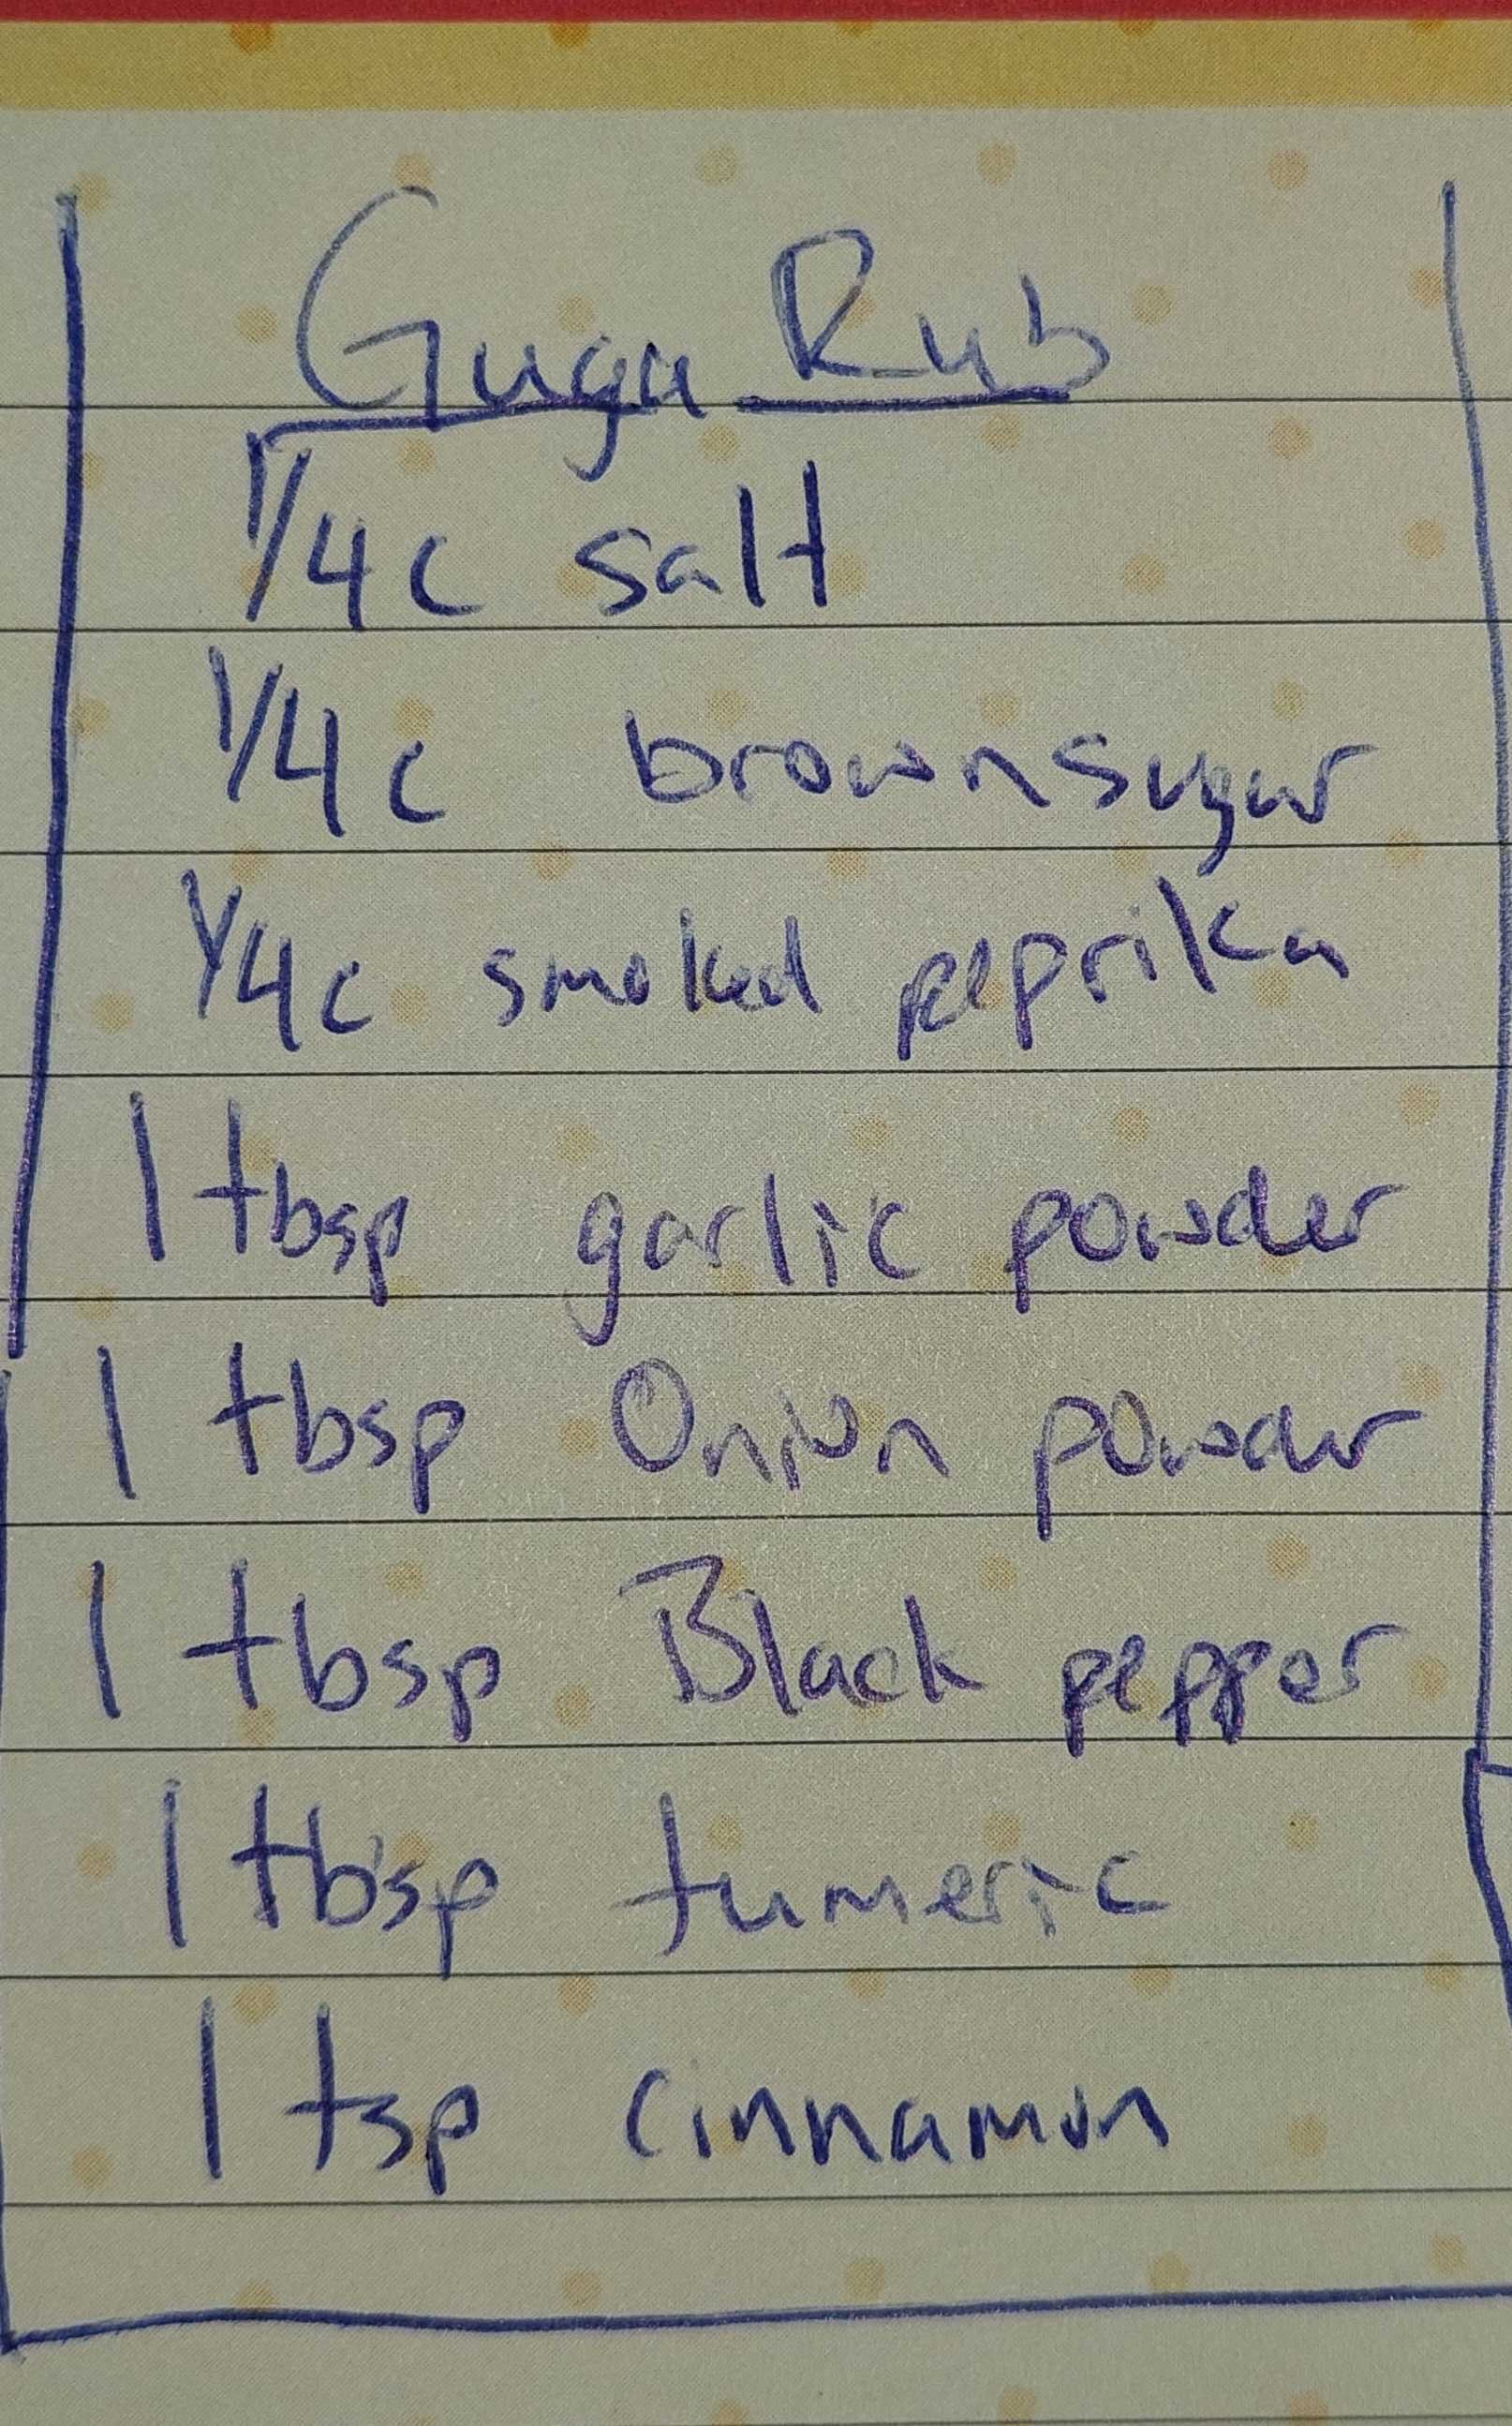 Guga Rub
1/4 c salt
1/4 c brownsugar
1/4 c smoked peprika
1 tbsp garlic powder
1 tbsp Onion powder
1 tbsp Black pepper
1 tbsp tumeric
1 tsp cinnamon